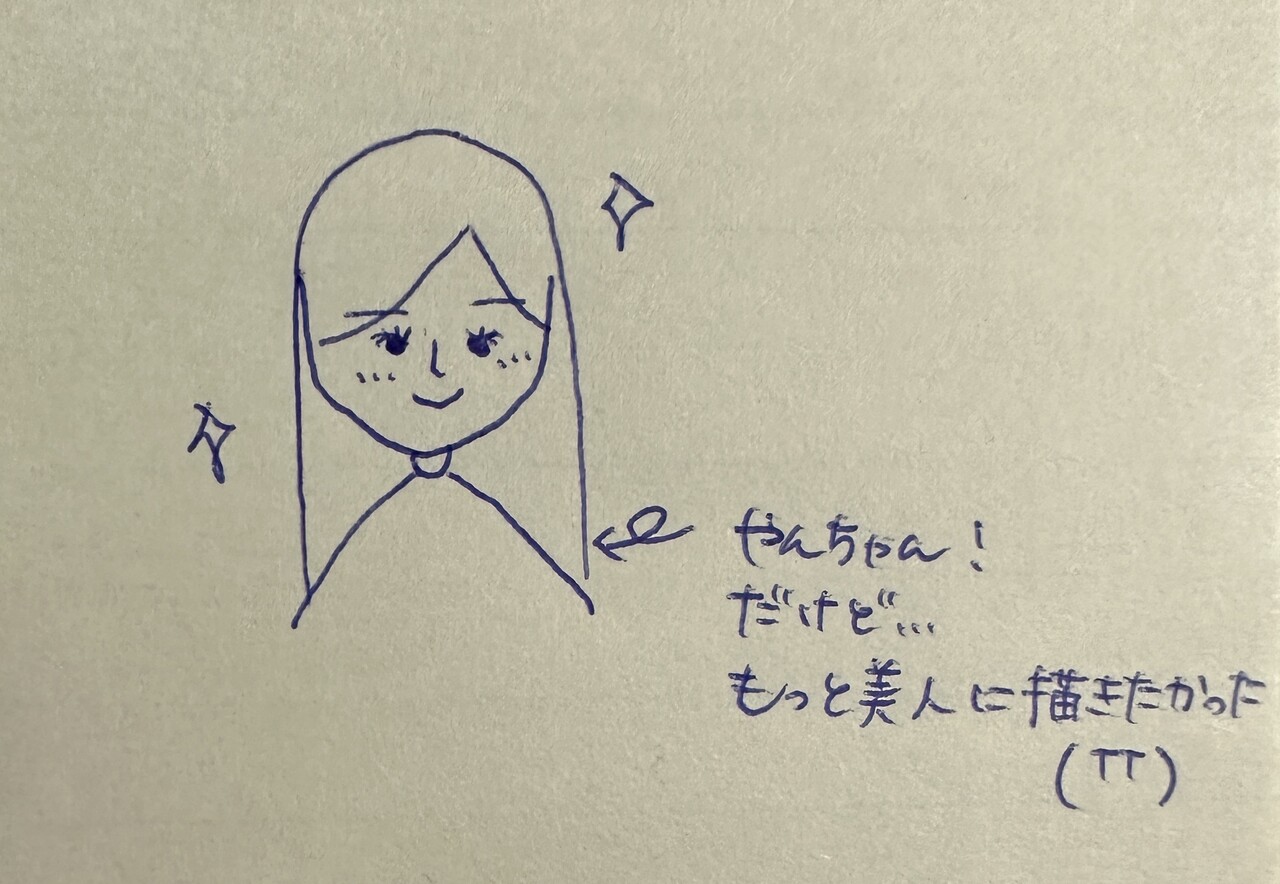 やんちゃん!
だけど…
もっと美人に描きたかった
(TT)